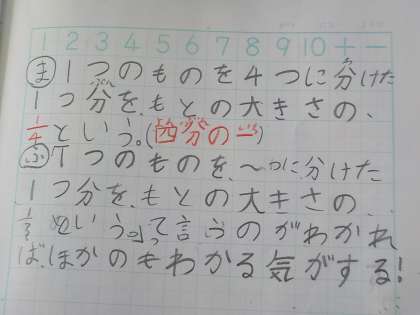 1 2 3 4 5 6 7 8 9 10 + −
ま 1つのものを4つに分けた
1つ分を、もとの大きさの、
1/4という。(四分の一)
ふ 1つのものを、〜つに分けた
1つ分を、もとの大きさの、
というって言うのがわかれ
ば、ほかのもわかる気がする!